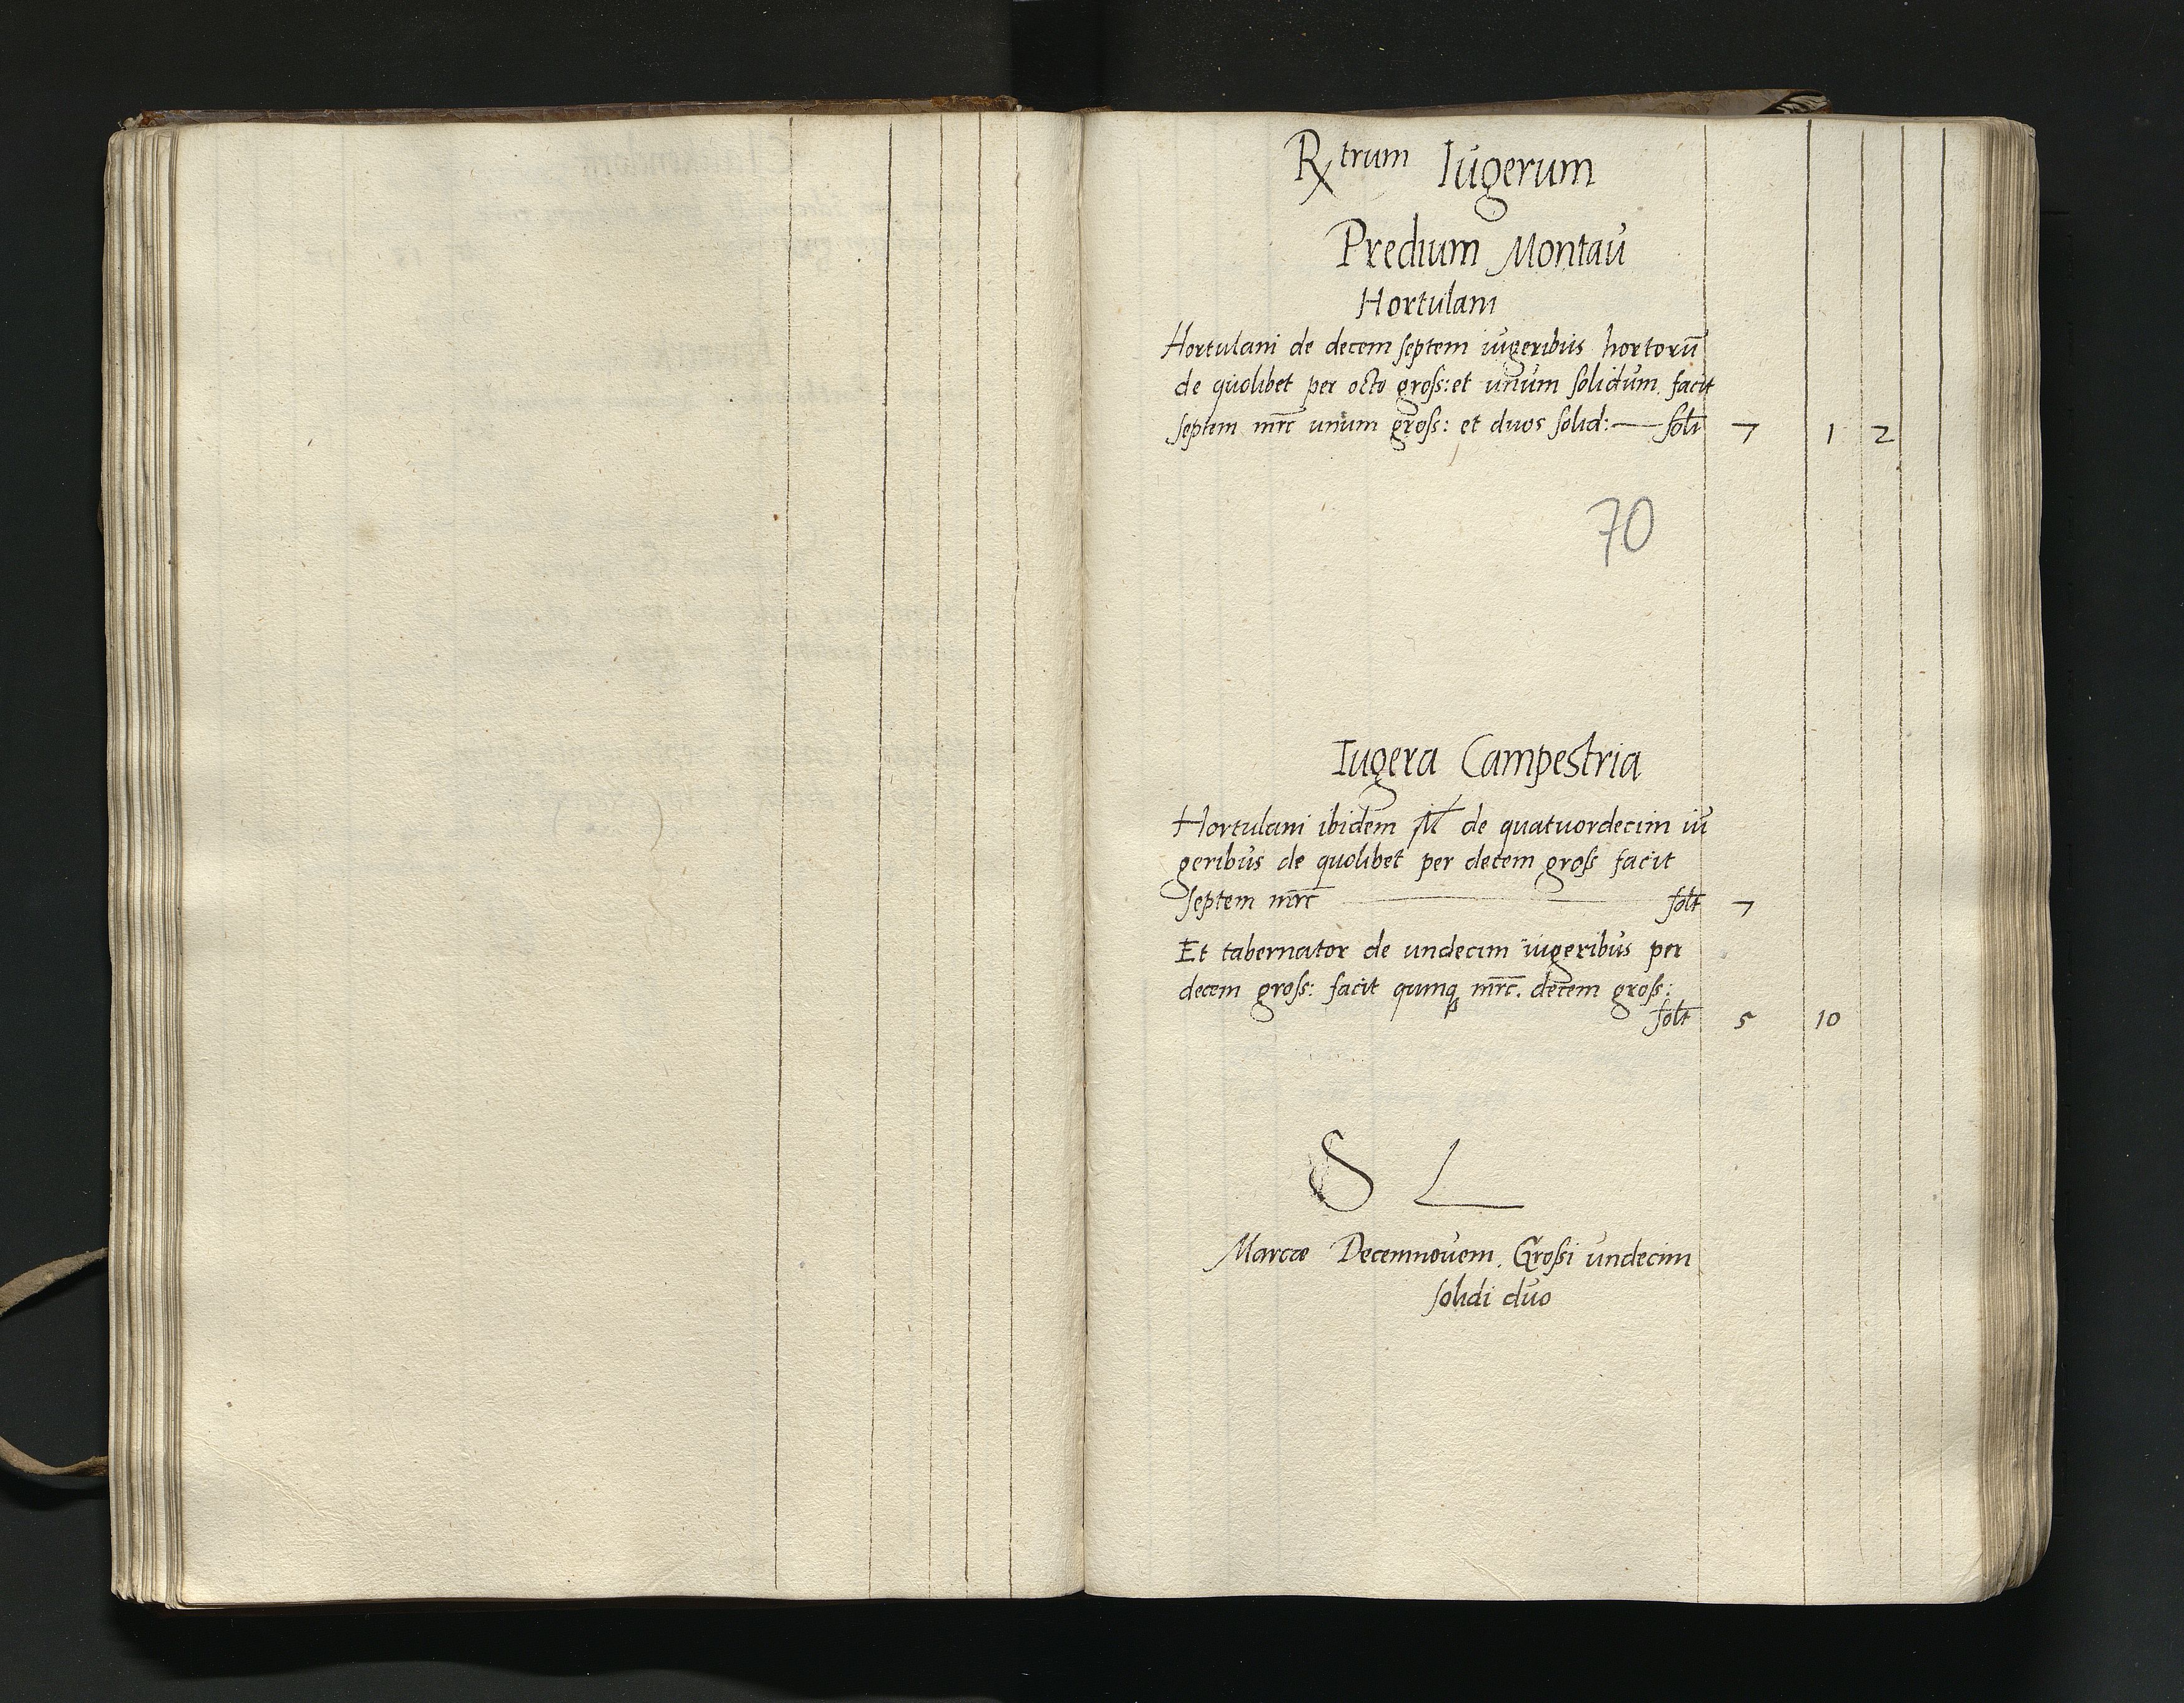 Rxtrum Iugerum
Predium Montau
Hortulani
Hortulani de decem septem iugeribus hortorū
de quolibet per octo gross: et unum solidum. facit
septem mrc unum gross: et duos solid: — solt 7 1 2
70
Iugera Campestria
Hortulani ibidem de quatuordecim iu
geribus de quolibet per decem gross facit
septem mrc solt 7
Et tabernator de undecim iugeribus per
decem gross: facit quinq mrc. decem gross:
solt 5 10
S L
Marcæ Decemnovem. Grossi undecim
solidi duo